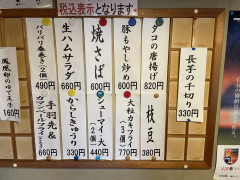 税込表示となります。
長芋の千切り
330円
タコの唐揚げ
820円
枝豆
380円
豚もやし炒め
600円
大粒カキフライ
(3個)
770円
焼さば
600円
シューマイ・大
(2個)
440円
生ハムサラダ
660円
からしきゅうり
330円
パリパリ春巻き(2個)
490円
手羽先&
カマンベールフライ
鳳凰卵のゆで玉子
160円